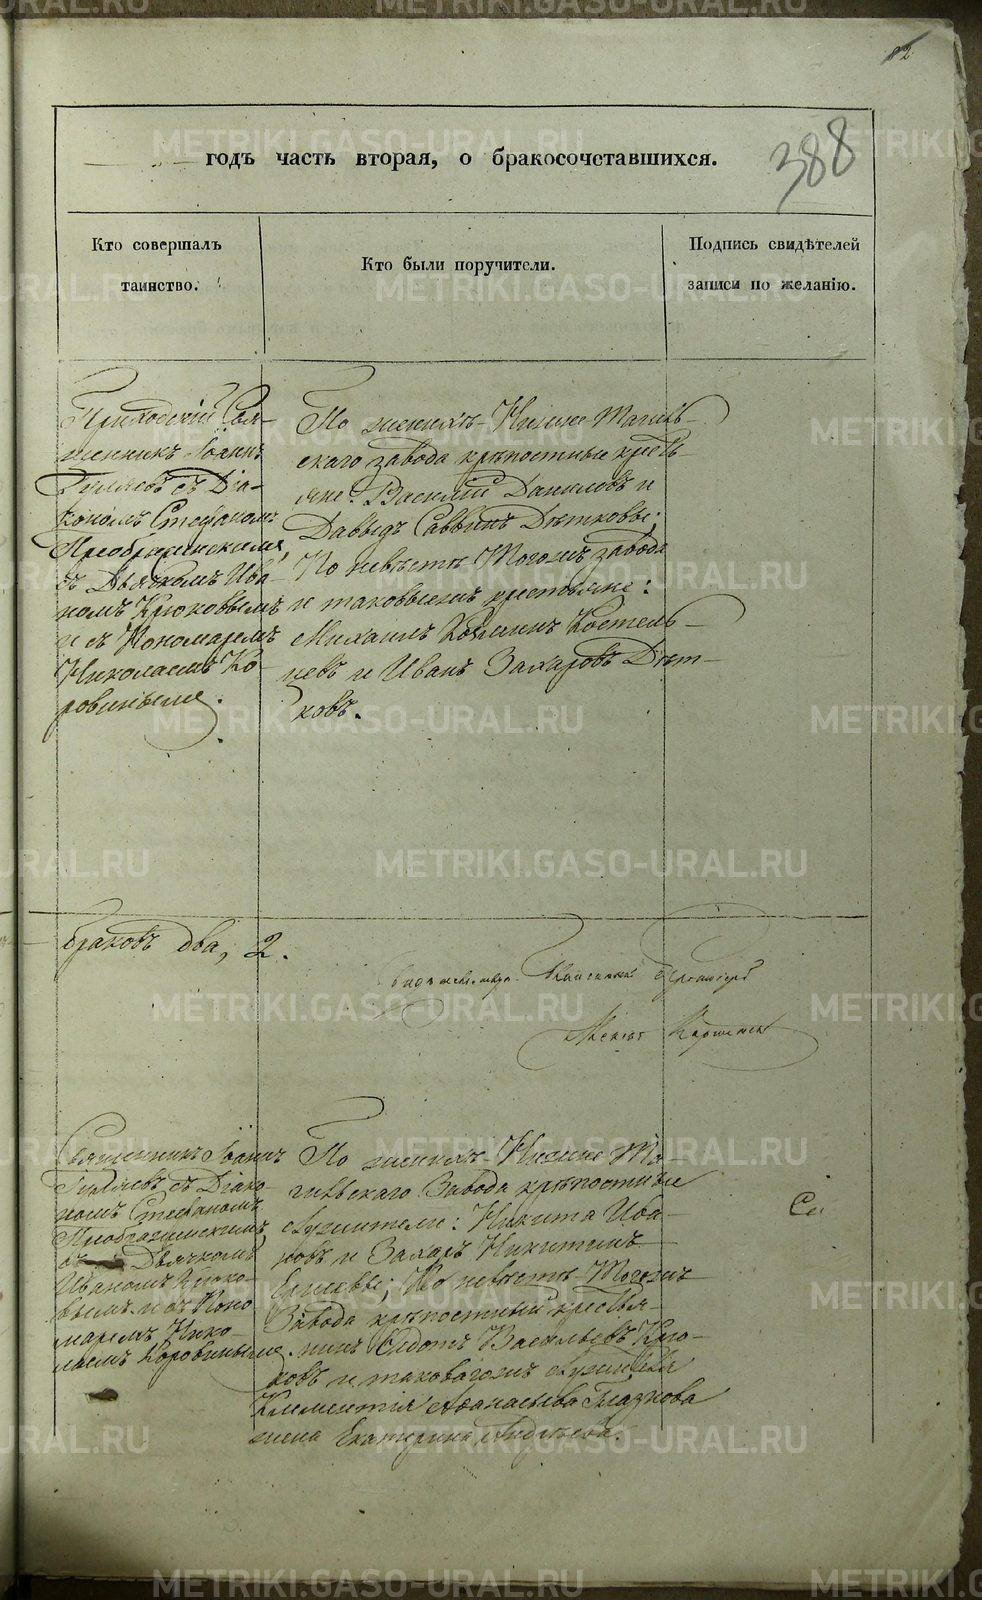 82
388
годъ часть вторая, о бракосочетавшихся.
Кто совершалъ
таинство.
Кто были поручители.
Подпись свидѣтелей
записи по желанію.
Приходскій Свя-
щенникъ Іоаннъ
съ Діа-
кономъ Стефаномъ
Преображенскимъ,
съ Дьячкомъ Ива-
номъ Крюковымъ
и съ Пономаремъ
Николаемъ Ко-
ровинымъ.
По женихѣ Нижне Тагиль-
скаго завода крѣпостные кресть-
яне: Василій Даниловъ и
Давыдъ Саввинъ Дѣтковы;
По невѣстѣ Тогожъ завода
и таковыежъ крестьяне:
Михаилъ Козминъ Костель-
невъ и Иванъ Захаровъ Дѣт-
ковъ.
браковъ два, 2.
Священникъ Іоаннъ
съ Діако-
номъ Стефаномъ
Преображенскимъ,
съ Дьячкомъ
Иваномъ Крюко-
вымъ и съ Поно-
маремъ Нико-
лаемъ Коровинымъ.
По женихѣ Нижне Та-
гильскаго Завода крѣпостные
служители: Никита Ива-
новъ и Захаръ Никитинъ
По невѣстѣ Тогожъ
Завода крѣпостный крестья-
нинъ Федотъ Васильевъ Крю-
ковъ и таковагожъ служителя
Климентія Афанасьева Глазунова
жена Екатерина Андреева.
METRIKI.GASO-URAL.RU